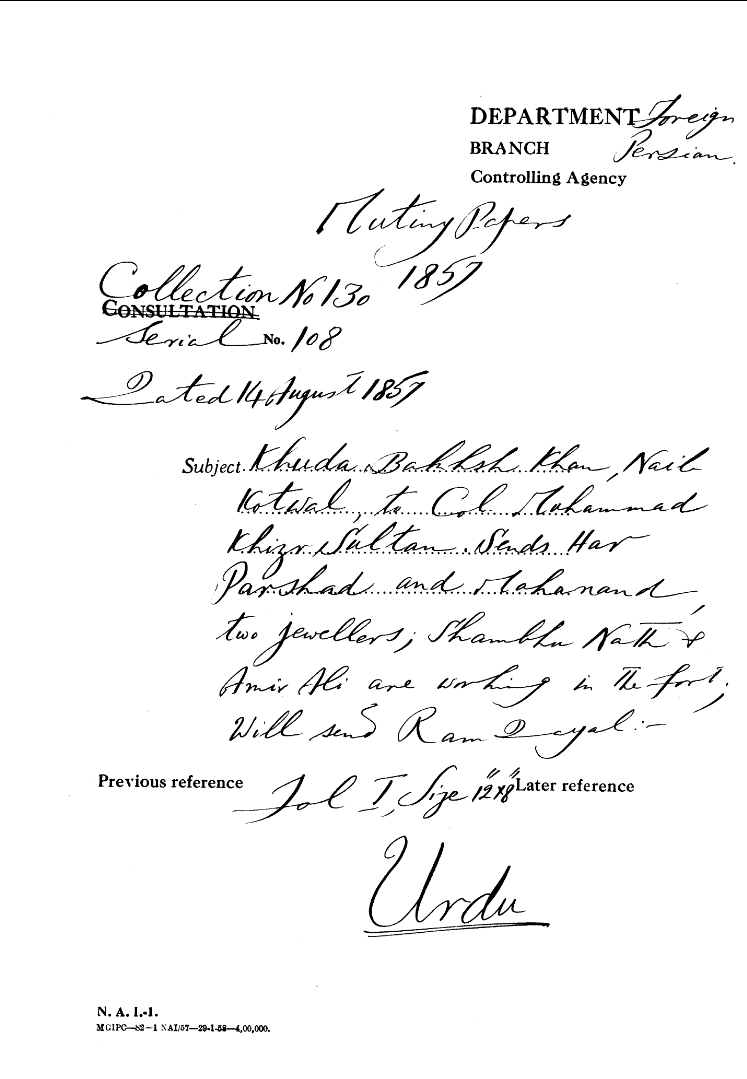 DEPARTMENT Foreign
BRANCH Persian.
Controlling Agency
Mutiny Papers
1857
Collection No 130
CONSULTATION
Serial No. 108
Dated 14 August 1857
Subject Khuda Bakhsh Khan, Naib
Kotwal, to Col Mohammad
Khizr Sultan. Sends Har
Parshad and Mohanand,
two jewellers; Shambhu Nath &
Amir Ali are working in the fort;
Will send Ram Dayal:-
Previous reference Fol I, Size 12"x8" Later reference
Urdu
N. A. I.-1.
MGIPC—S2—1 NAI/57—29-1-58—4,00,000.